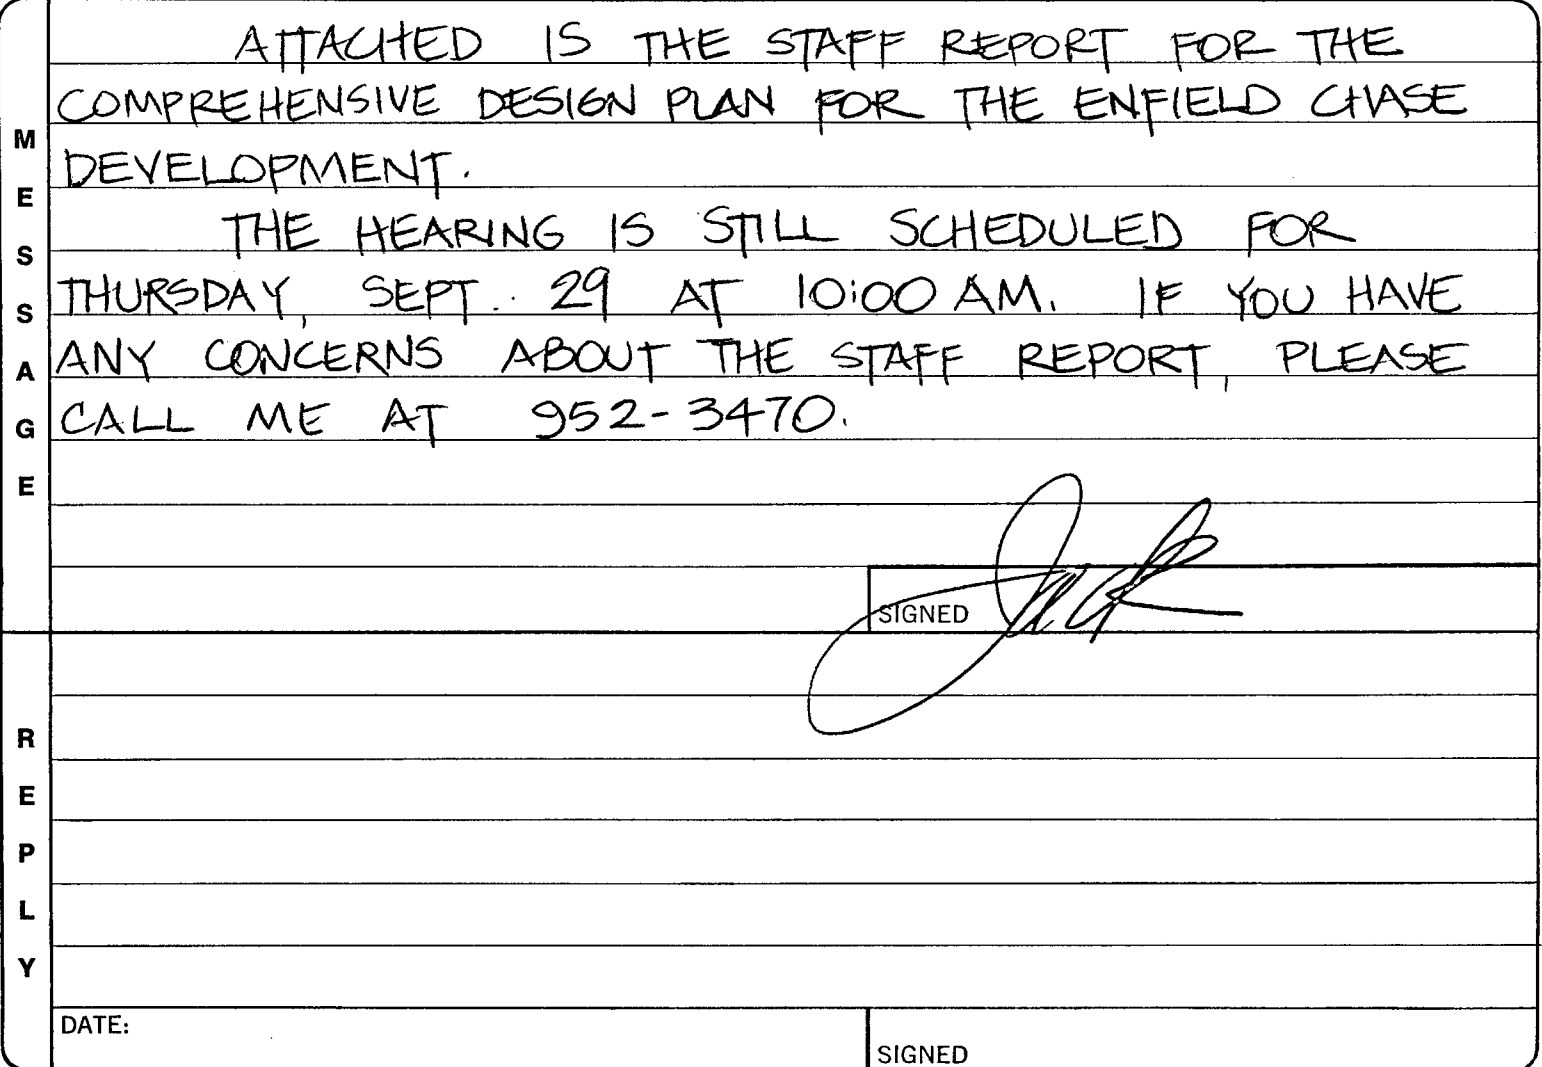 ATTACHED IS THE STAFF REPORT FOR THE
COMPREHENSIVE DESIGN PLAN FOR THE ENFIELD CHASE
DEVELOPMENT.
THE HEARING IS STILL SCHEDULED FOR
THURSDAY, SEPT. 29 AT 10:00 AM. IF YOU HAVE
ANY CONCERNS ABOUT THE STAFF REPORT, PLEASE
CALL ME AT 952-3470.
MESSAGE
SIGNED
REPLY
DATE:
SIGNED